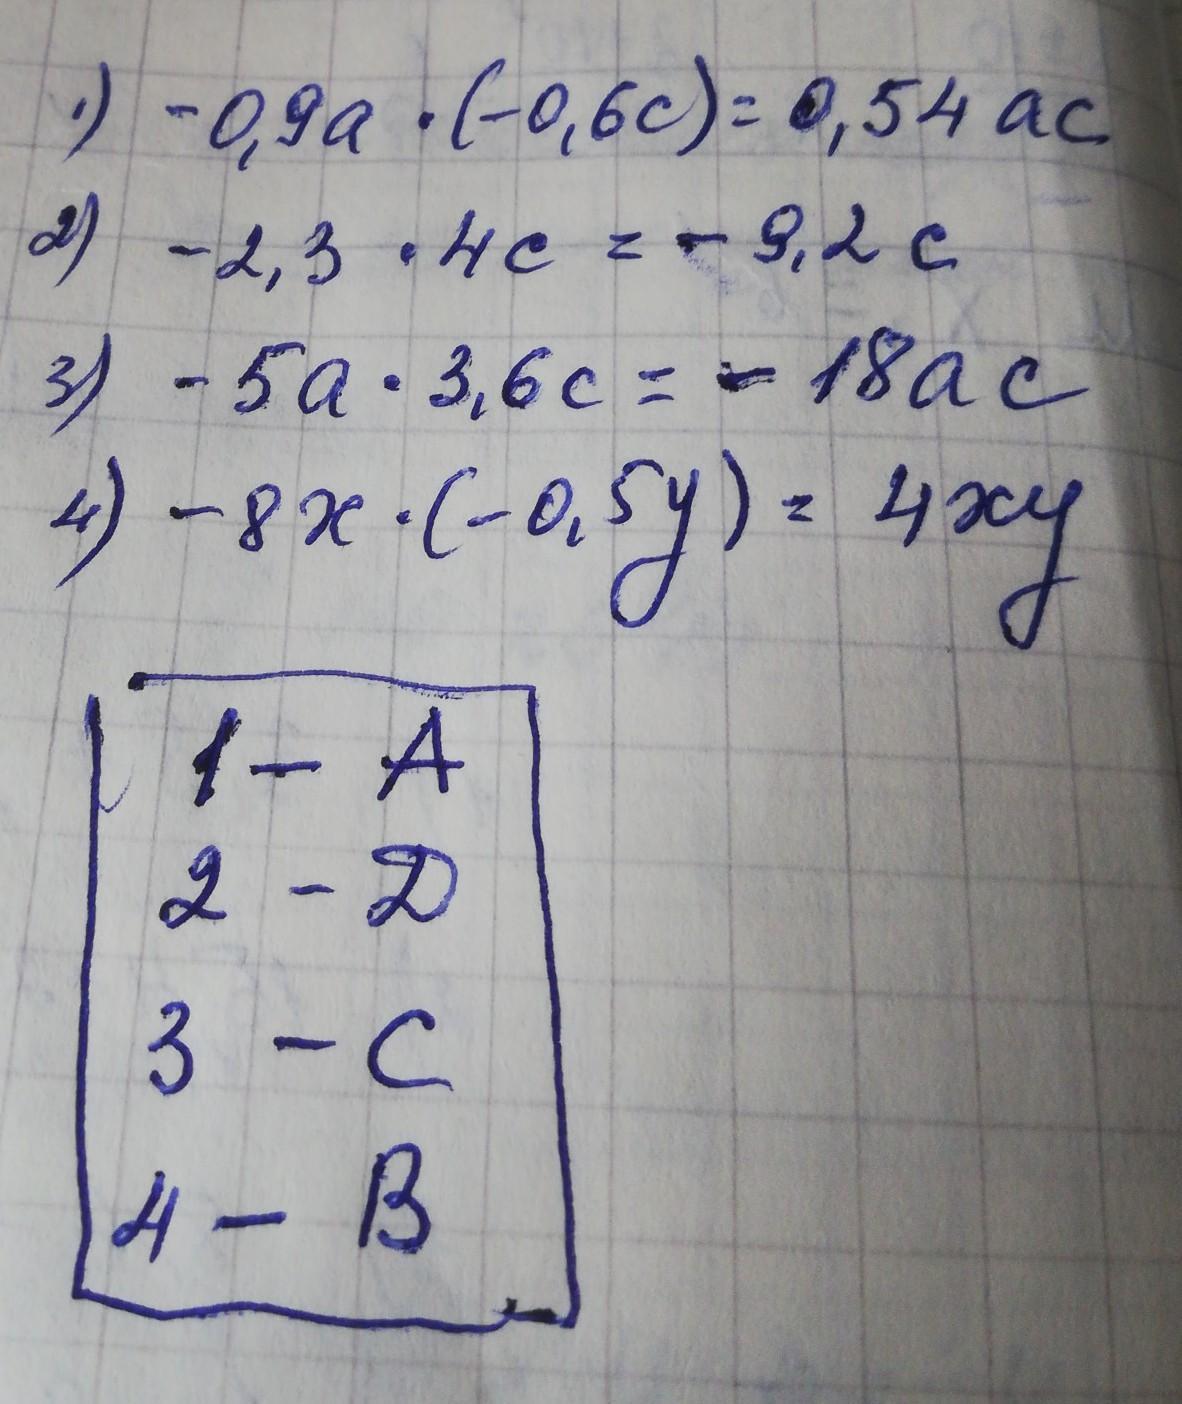 1) -0,9a · (-0,6c) = 0,54 ac
2) -2,3 · 4c = - 9,2 c
3) -5a · 3,6c = - 18ac
4) -8x · (-0,5y) = 4xy
1 - A
2 - D
3 - C
4 - B